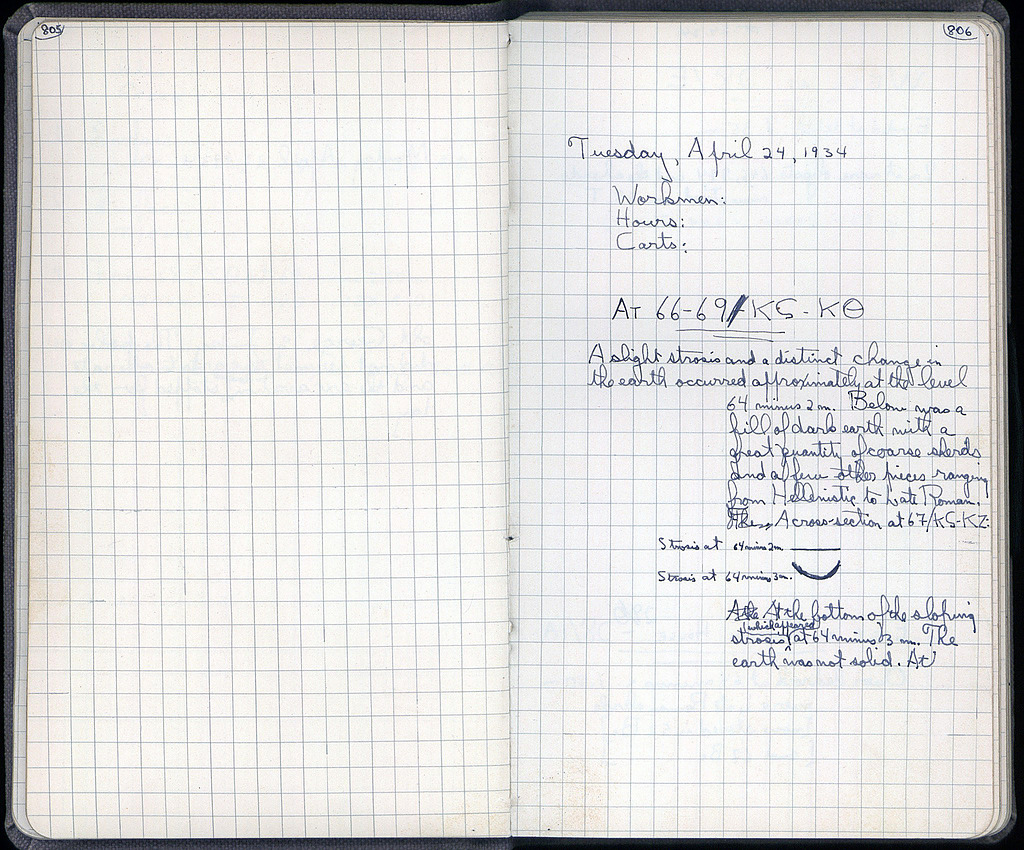 805
806
Tuesday, April 24, 1934
Workmen:
Hours:
Carts:
At 66-69/ΚϚ-ΚΘ
A slight strosis and a distinct change in
the earth occurred approximately at the level
64 minus 2 m. Below was a
fill of dark earth with a
great quantity of coarse sherds
and a few other pieces ranging
from Hellenistic to Late Roman.
A cross-section at 67/ΚϚ-ΚΖ:
Strosis at 64 minus 2m.
Strosis at 64 minus 3m.
At the bottom of the sloping
(which appeared)
strosis at 64 minus 3 m. The
earth was not solid. At